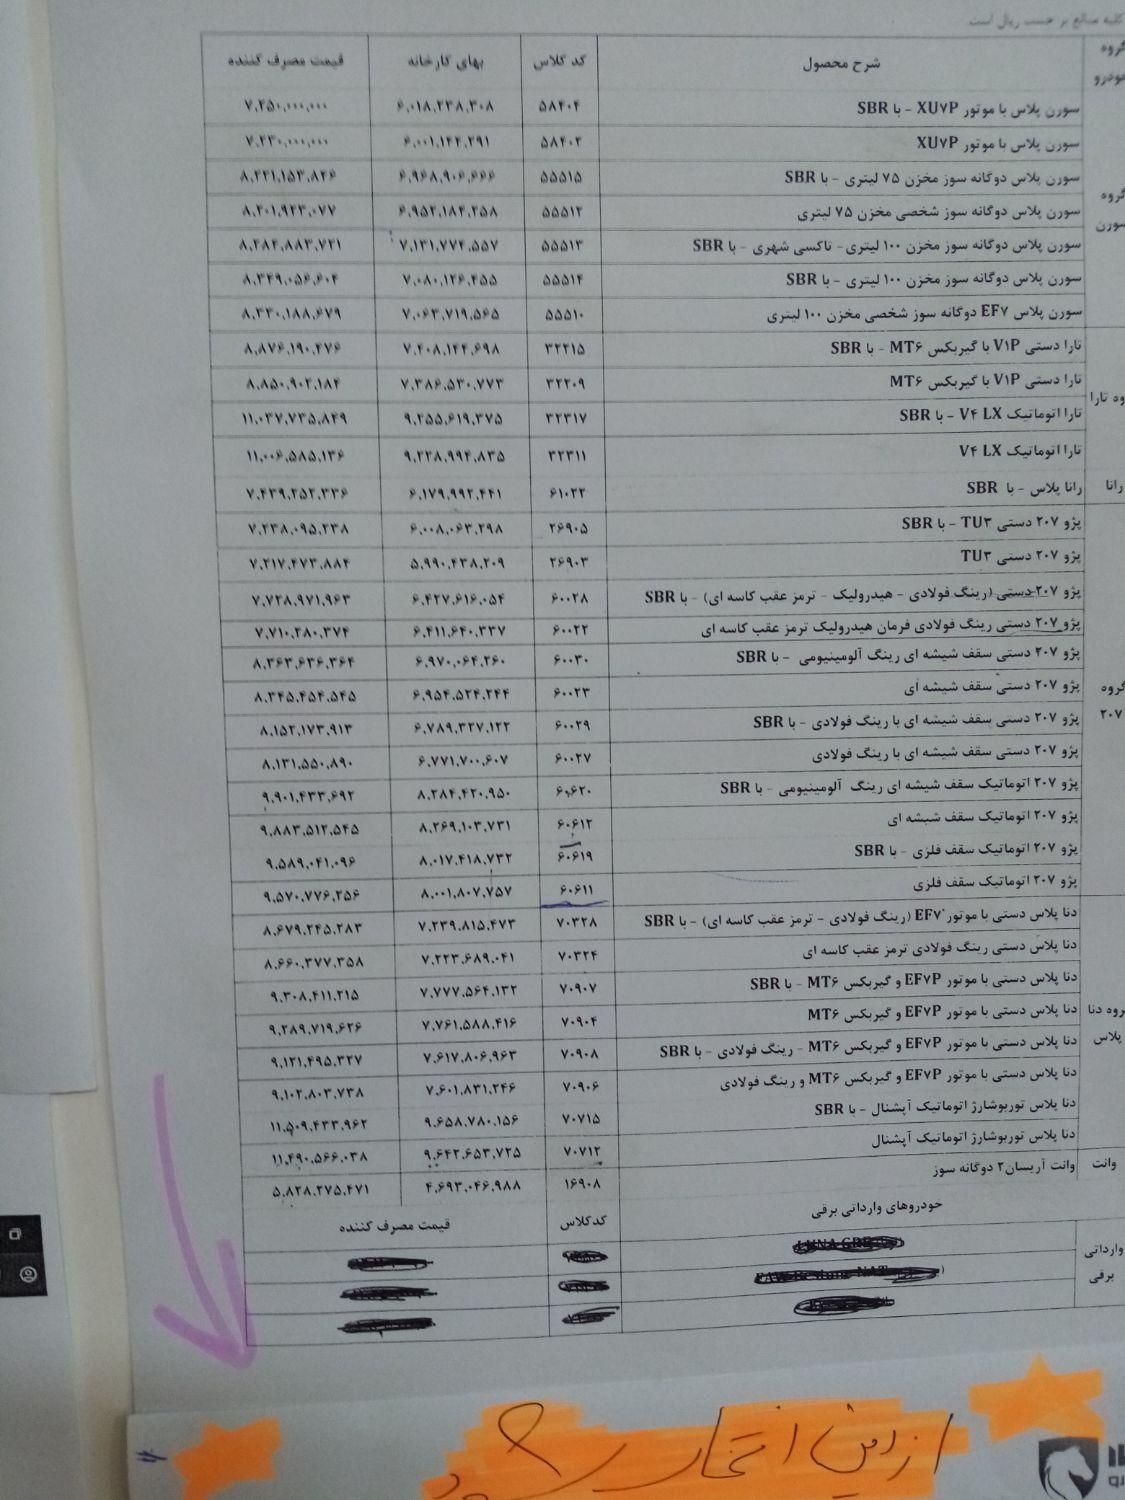 کلیه مبالغ بر حسب ریال است
گروه خودرو شرح محصول کد کلاس بهای کارخانه قیمت مصرف کننده
گروه سورن
سورن پلاس با موتور XU۷P - با SBR ۵۸۴۰۴ ۶,۰۱۸,۲۳۸,۳۰۸ ۷,۲۵۰,۰۰۰,۰۰۰
سورن پلاس با موتور XU۷P ۵۸۴۰۳ ۶,۰۰۱,۱۴۴,۲۹۱ ۷,۲۳۰,۰۰۰,۰۰۰
سورن پلاس دوگانه سوز مخزن ۷۵ لیتری - با SBR ۵۵۵۱۵ ۶,۹۶۸,۹۰۶,۶۶۶ ۸,۲۲۱,۱۵۳,۸۴۶
سورن پلاس دوگانه سوز شخصی مخزن ۷۵ لیتری ۵۵۵۱۲ ۶,۹۵۲,۱۸۴,۲۵۸ ۸,۲۰۱,۹۲۳,۰۷۷
سورن پلاس دوگانه سوز مخزن ۱۰۰ لیتری- تاکسی شهری - با SBR ۵۵۵۱۳ ۷,۱۳۱,۷۷۴,۵۵۷ ۸,۲۸۴,۸۸۳,۷۲۱
سورن پلاس دوگانه سوز مخزن ۱۰۰ لیتری - با SBR ۵۵۵۱۴ ۷,۰۸۰,۱۲۶,۴۵۵ ۸,۳۴۹,۰۵۶,۶۰۴
سورن پلاس EF۷ دوگانه سوز شخصی مخزن ۱۰۰ لیتری ۵۵۵۱۰ ۷,۰۶۳,۷۱۹,۵۶۵ ۸,۳۳۰,۱۸۸,۶۷۹
وه تارا
تارا دستی V۱P با گیربکس MT۶ - با SBR ۳۲۲۱۵ ۷,۴۰۸,۱۴۴,۶۹۸ ۸,۸۷۶,۱۹۰,۴۷۶
تارا دستی V۱P با گیربکس MT۶ ۳۲۲۰۹ ۷,۳۸۶,۵۳۰,۷۷۳ ۸,۸۵۰,۹۰۲,۱۸۴
تارا اتوماتیک V۴ LX - با SBR ۳۲۳۱۷ ۹,۲۵۵,۶۱۹,۳۷۵ ۱۱,۰۳۷,۷۳۵,۸۴۹
تارا اتوماتیک V۴ LX ۳۲۳۱۱ ۹,۲۲۸,۹۹۴,۸۳۵ ۱۱,۰۰۶,۵۸۵,۱۳۶
رانا رانا پلاس - با SBR ۶۱۰۲۲ ۶,۱۷۹,۹۹۲,۴۴۱ ۷,۴۳۹,۲۵۲,۳۳۶
گروه ۲۰۷
پژو ۲۰۷ دستی TU۳ - با SBR ۲۶۹۰۵ ۶,۰۰۸,۰۶۳,۲۹۸ ۷,۲۳۸,۰۹۵,۲۳۸
پژو ۲۰۷ دستی TU۳ ۲۶۹۰۳ ۵,۹۹۰,۴۳۸,۲۰۹ ۷,۲۱۷,۴۷۳,۸۸۴
پژو ۲۰۷ دستی (رینگ فولادی - هیدرولیک - ترمز عقب کاسه ای) - با SBR ۶۰۰۲۸ ۶,۴۲۷,۶۱۶,۰۵۴ ۷,۷۲۸,۹۷۱,۹۶۳
پژو ۲۰۷ دستی رینگ فولادی فرمان هیدرولیک ترمز عقب کاسه ای ۶۰۰۲۲ ۶,۴۱۱,۶۴۰,۳۳۷ ۷,۷۱۰,۲۸۰,۳۷۴
پژو ۲۰۷ دستی سقف شیشه ای رینگ آلومینیومی - با SBR ۶۰۰۳۰ ۶,۹۷۰,۰۶۴,۲۶۰ ۸,۳۶۳,۶۳۶,۳۶۴
پژو ۲۰۷ دستی سقف شیشه ای ۶۰۰۲۳ ۶,۹۵۴,۵۲۴,۲۴۴ ۸,۳۴۵,۴۵۴,۵۴۵
پژو ۲۰۷ دستی سقف شیشه ای با رینگ فولادی - با SBR ۶۰۰۲۹ ۶,۷۸۹,۳۲۷,۱۲۲ ۸,۱۵۲,۱۷۳,۹۱۳
پژو ۲۰۷ دستی سقف شیشه ای با رینگ فولادی ۶۰۰۲۷ ۶,۷۷۱,۷۰۰,۶۰۷ ۸,۱۳۱,۵۵۰,۸۹۰
پژو ۲۰۷ اتوماتیک سقف شیشه ای رینگ آلومینیومی - با SBR ۶۰۶۲۰ ۸,۲۸۴,۴۲۰,۹۵۰ ۹,۹۰۱,۴۳۳,۶۹۲
پژو ۲۰۷ اتوماتیک سقف شیشه ای ۶۰۶۱۲ ۸,۲۶۹,۱۰۳,۷۳۱ ۹,۸۸۳,۵۱۲,۵۴۵
پژو ۲۰۷ اتوماتیک سقف فلزی - با SBR ۶۰۶۱۹ ۸,۰۱۷,۴۱۸,۷۳۲ ۹,۵۸۹,۰۴۱,۰۹۶
پژو ۲۰۷ اتوماتیک سقف فلزی ۶۰۶۱۱ ۸,۰۰۱,۸۰۷,۷۵۷ ۹,۵۷۰,۷۷۶,۲۵۶
روه دنا پلاس
دنا پلاس دستی با موتور EF۷ (رینگ فولادی - ترمز عقب کاسه ای) - با SBR ۷۰۳۲۸ ۷,۲۳۹,۸۱۵,۴۷۳ ۸,۶۷۹,۲۴۵,۲۸۳
دنا پلاس دستی رینگ فولادی ترمز عقب کاسه ای ۷۰۳۲۴ ۷,۲۲۳,۶۸۹,۰۴۱ ۸,۶۶۰,۳۷۷,۳۵۸
دنا پلاس دستی با موتور EF۷P و گیربکس MT۶ - با SBR ۷۰۹۰۷ ۷,۷۷۷,۵۶۴,۱۳۲ ۹,۳۰۸,۴۱۱,۲۱۵
دنا پلاس دستی با موتور EF۷P و گیربکس MT۶ ۷۰۹۰۴ ۷,۷۶۱,۵۸۸,۴۱۶ ۹,۲۸۹,۷۱۹,۶۲۶
دنا پلاس دستی با موتور EF۷P و گیربکس MT۶ - رینگ فولادی - با SBR ۷۰۹۰۸ ۷,۶۱۷,۸۰۶,۹۶۳ ۹,۱۲۱,۴۹۵,۳۲۷
دنا پلاس دستی با موتور EF۷P و گیربکس MT۶ و رینگ فولادی ۷۰۹۰۶ ۷,۶۰۱,۸۳۱,۲۴۶ ۹,۱۰۲,۸۰۳,۷۳۸
دنا پلاس توربوشارژ اتوماتیک آپشنال - با SBR ۷۰۷۱۵ ۹,۶۵۸,۷۸۰,۱۵۶ ۱۱,۵۰۹,۴۳۳,۹۶۲
دنا پلاس توربوشارژ اتوماتیک آپشنال ۷۰۷۱۲ ۹,۶۴۲,۶۵۳,۷۲۵ ۱۱,۴۹۰,۵۶۶,۰۳۸
وانت وانت آریسان۲ دوگانه سوز ۱۶۹۰۸ ۴,۶۹۳,۰۴۶,۹۸۸ ۵,۸۲۸,۲۷۵,۴۷۱
خودروهای وارداتی برقی کدکلاس قیمت مصرف کننده
وارداتی برقی